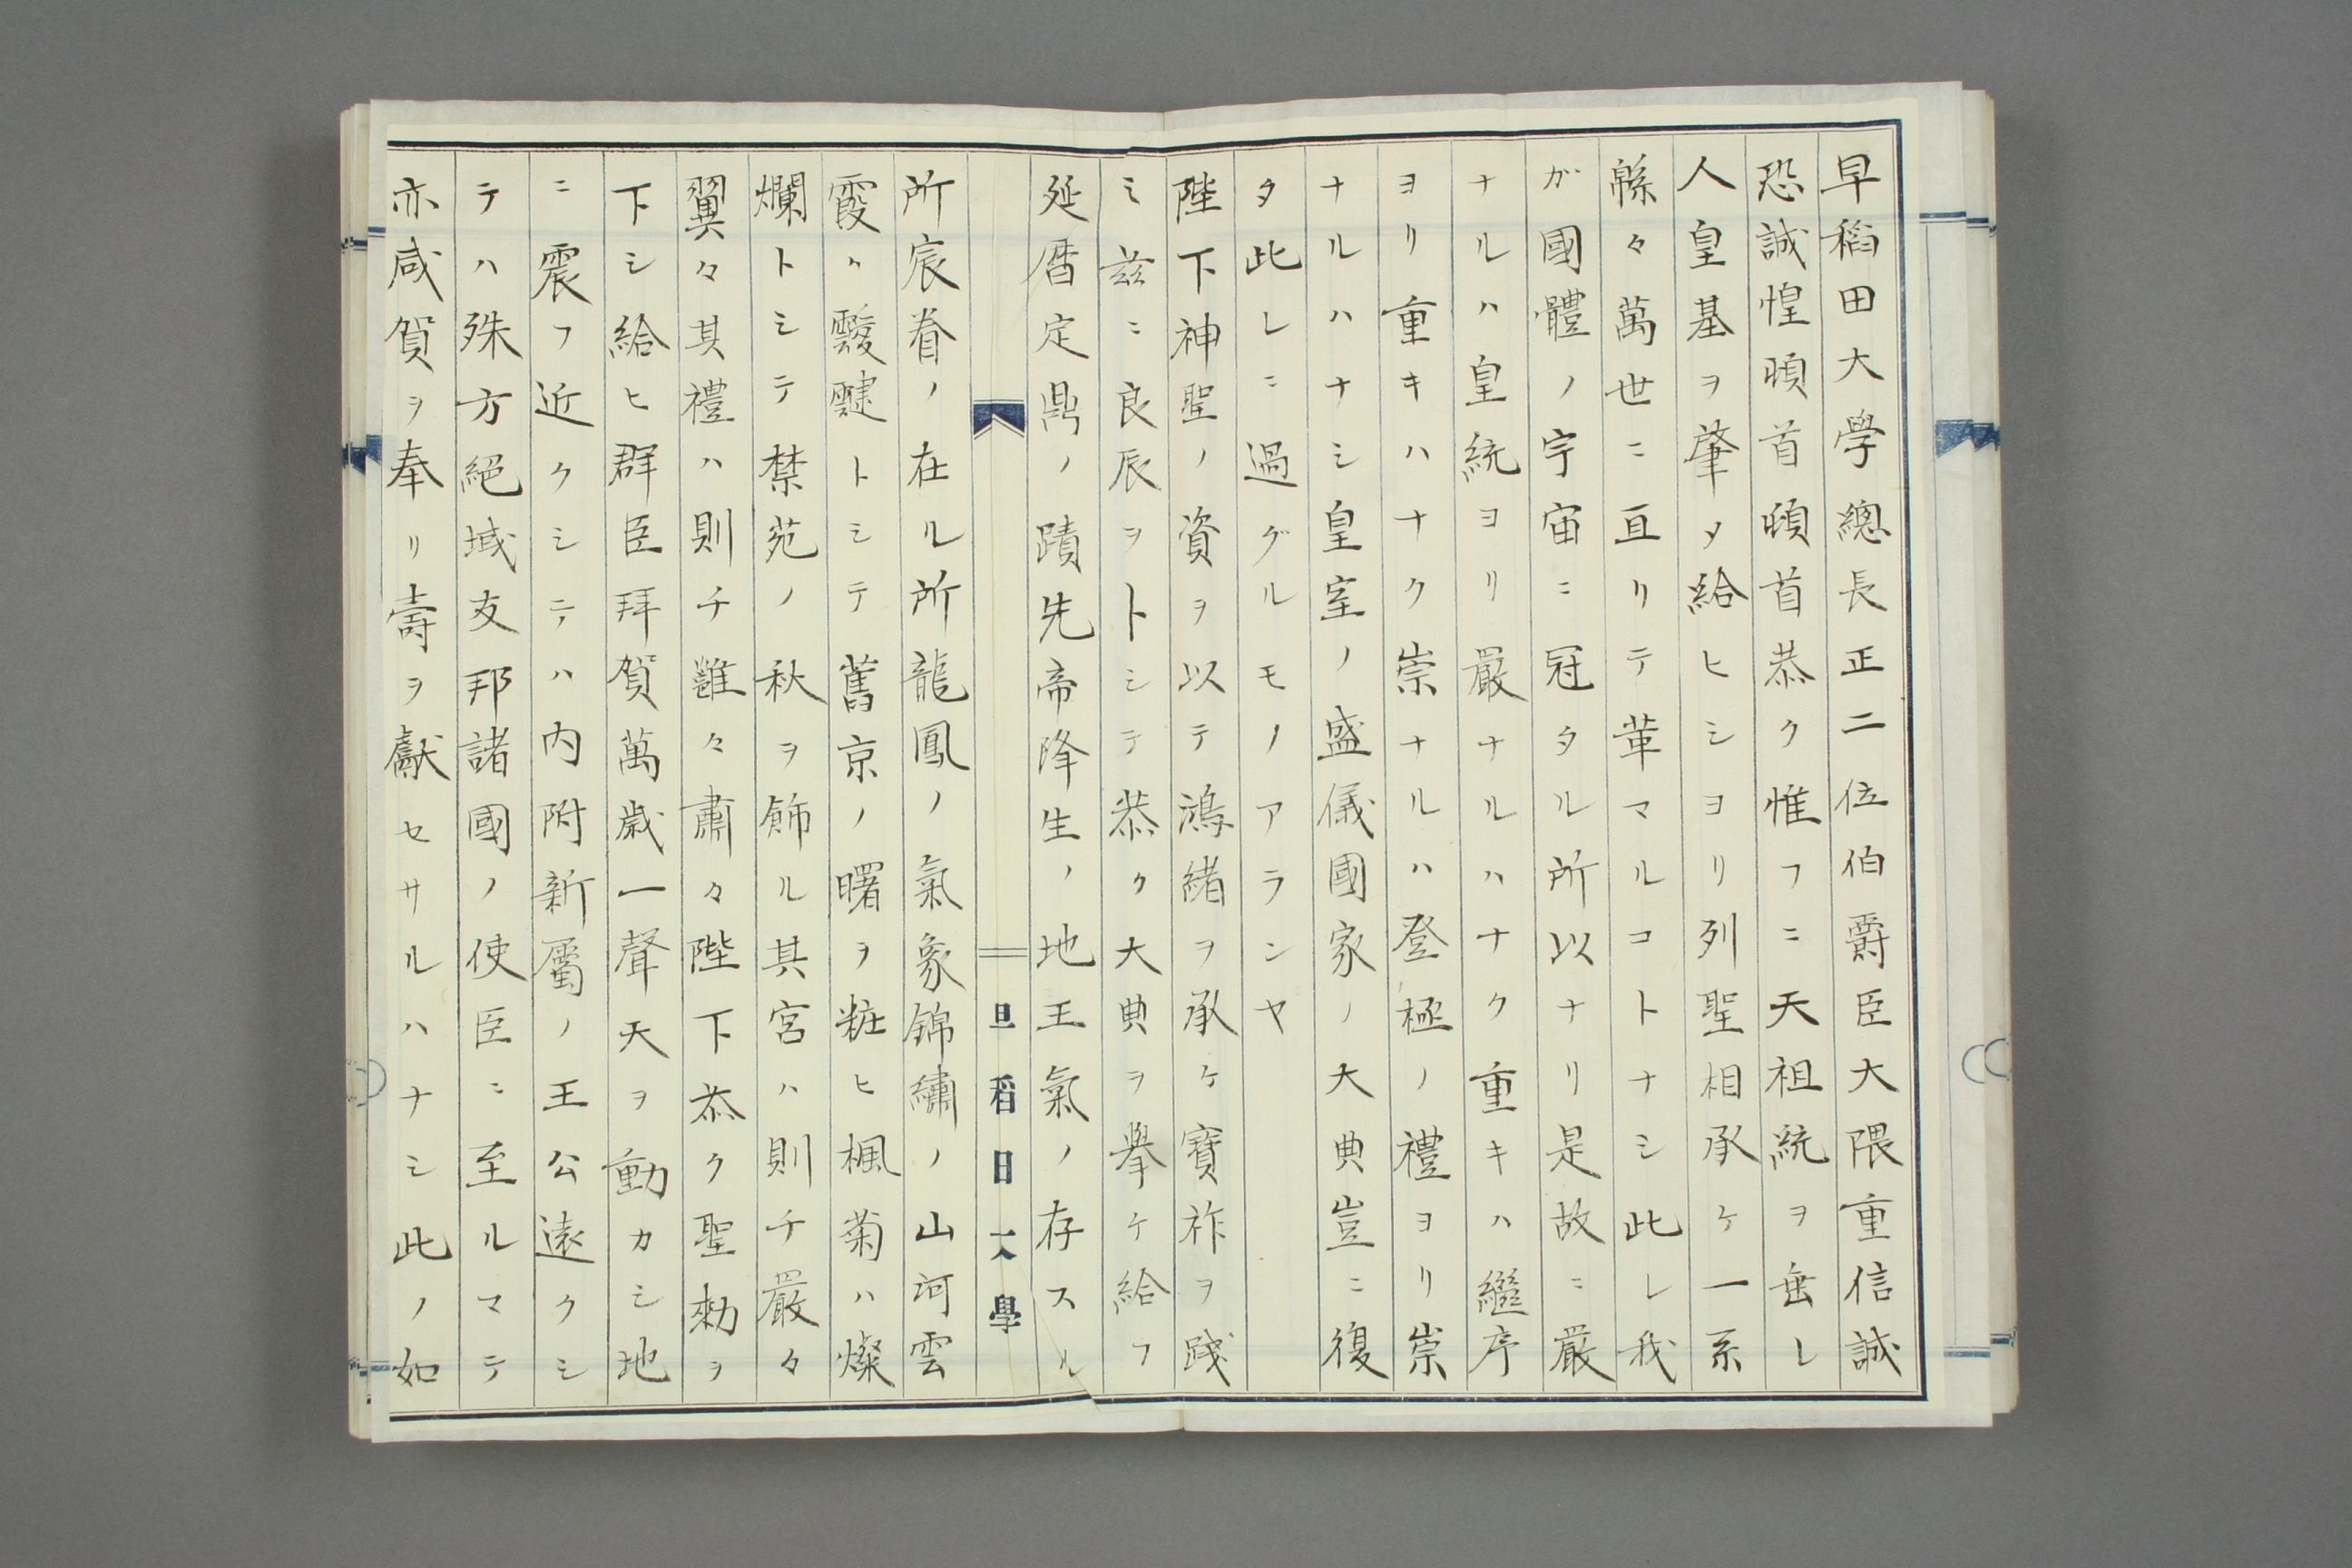 早稻田大學總長正二位伯爵臣大隈重信誠
恐誠惶頓首頓首恭ク惟フニ天祖統ヲ垂レ
人皇基ヲ肇メ給ヒシヨリ列聖相承ケ一系
緜々萬世ニ亘リテ革マルコトナシ此レ我
ガ國體ノ宇宙ニ冠タル所以ナリ是故ニ嚴
ナルハ皇統ヨリ嚴ナルハナク重キハ繼序
ヨリ重キハナク崇ナルハ登極ノ禮ヨリ崇
ナルハナシ皇室ノ盛儀國家ノ大典豈ニ復
タ此レニ過グルモノアランヤ
陛下神聖ノ資ヲ以テ鴻緒ヲ承ケ寶祚ヲ踐
ミ茲ニ良辰ヲトシテ恭ク大典ヲ擧ケ給フ
延暦定鼎ノ蹟先帝降生ノ地王氣ノ存スル
早稻田大學
所宸眷ノ在ル所龍鳳ノ氣象錦繡ノ山河雲
霞ヶ靉靆トシテ舊京ノ曙ヲ粧ヒ楓菊ハ燦
爛トシテ禁苑ノ秋ヲ飾ル其宮ハ則チ嚴々
翼々其禮ハ則チ雝々肅々陛下恭ク聖勅ヲ
下シ給ヒ群臣拜賀萬歳一聲天ヲ動カシ地
ニ震フ近クシテハ内附新屬ノ王公遠クシ
テハ殊方絕域友邦諸國ノ使臣ニ至ルマテ
亦咸賀ヲ奉リ壽ヲ獻セサルハナシ此ノ如